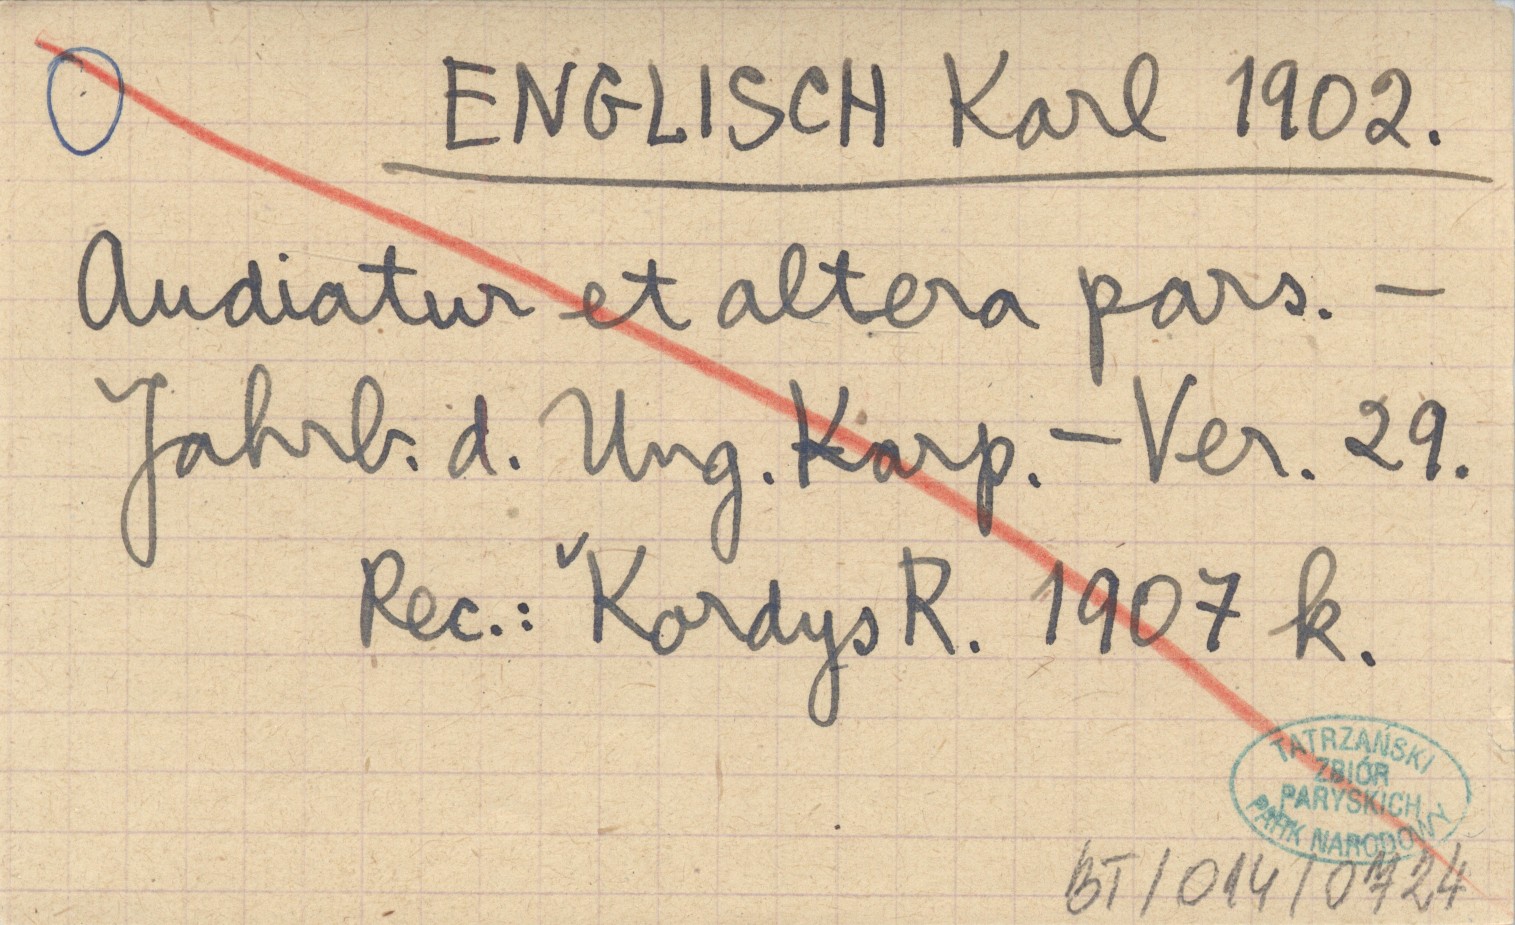 ENGLISCH Karl 1902.
Audiatur et altera pars. —
Jahrb. d. Ung. Karp. – Ver. 29.
Rec.: Kordys R. 1907 k.
TATRZAŃSKI
ZBIÓR
PARYSKICH
PARK NARODOWY
BT/014/0724